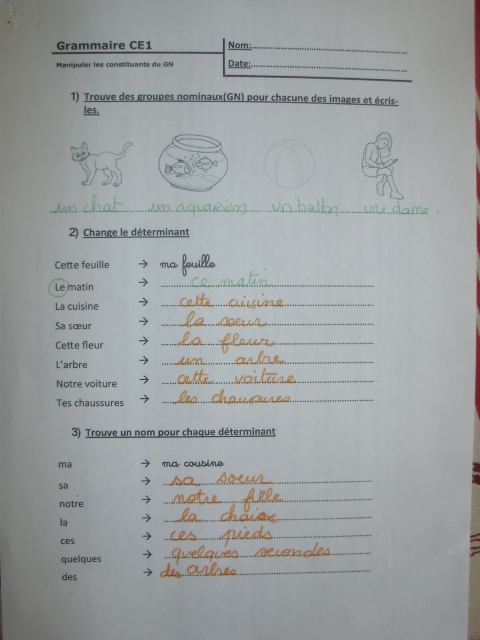 Grammaire CE1
Nom:
Manipuler les constituants du GN
Date:
1) Trouve des groupes nominaux(GN) pour chacune des images et écris-
les.
un chat un aquarium un ballon une dame.
2) Change le déterminant
Cette feuille → ma feuille
Le matin → ce matin
La cuisine → cette cuisine
Sa sœur → la soeur
Cette fleur → la fleur
L'arbre → un arbre
Notre voiture → cette voiture
Tes chaussures → les chausures
3) Trouve un nom pour chaque déterminant
ma → ma cousine
sa → sa soeur
notre → notre fille
la → la chaise
ces → ces pieds
quelques → quelques secondes
des → des arbres